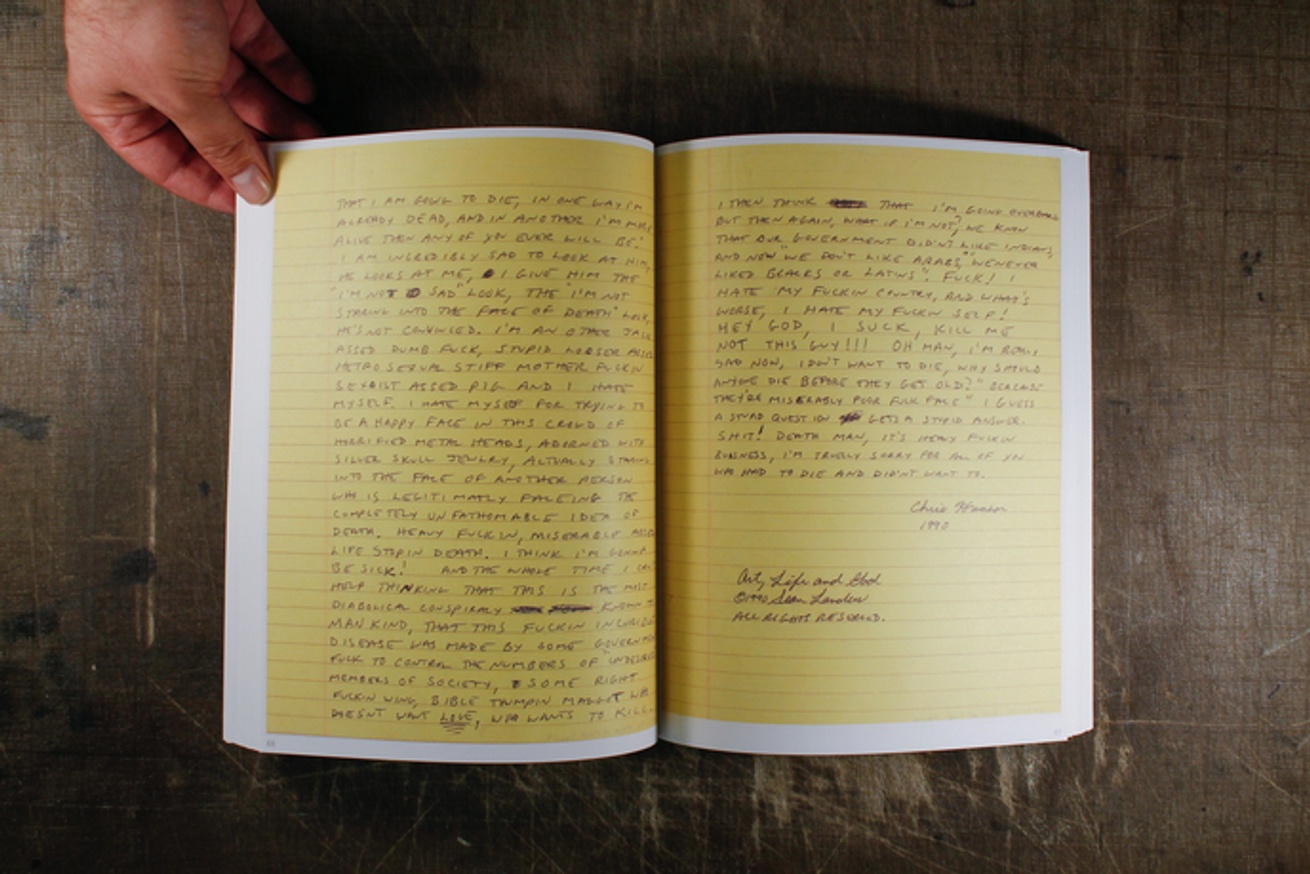 THAT I AM GOING TO DIE, IN ONE WAY I'M
ALREADY DEAD, AND IN ANOTHER I'M MORE
ALIVE THEN ANY OF YOU EVER WILL BE."
I AM INCREDIBLY SAD TO LOOK AT HIM,
HE LOOKS AT ME, I GIVE HIM THE
"I'M NOT SAD" LOOK, THE "I'M NOT
STARING INTO THE FACE OF DEATH" LOOK,
HE'S NOT CONVINCED. I'M AN OTHER
ASSED DUMB FUCK, STUPID LOOSER ASSED
HETROSEXUAL STIFF MOTHER FUCKIN
SEXIST ASSED PIG AND I HATE
MYSELF. I HATE MYSELF FOR TRYING TO
BE A HAPPY FACE IN THIS CROWD OF
HORRIFIED METAL HEADS, ADORNED WITH
SILVER SKULL JEWLRY, ACTUALLY STARING
INTO THE FACE OF ANOTHER PERSON
WHO IS LEGITIMATLY FACEING THE
COMPLETELY UNFATHOMABLE IDEA OF
DEATH. HEAVY FUCKIN, MISERABLE ASSED
LIFE STOPIN DEATH. I THINK I'M GONNA
BE SICK! AND THE WHOLE TIME I
HELP THINKING THAT THIS IS THE MOST
DIABOLICAL CONSPIRALY KNOWN
MAN KIND, THAT THIS FUCKIN
DISEASE WAS MADE BY SOME
FUCK TO CONTROL THE NUMBERS OF
MEMBERS OF SOCIETY, SOME RIGHT
FUCKIN WING, BIBLE THUMPIN MAGGOT WHO
DOESN'T WANT LOVE, WHO WANTS TO KILL.
66
I THEN THINK THAT I'M GOING OVERBOARD
BUT THEN AGAIN, WHAT IF I'M NOT? WE KNOW
THAT OUR GOVERNMENT DIDN'T LIKE INDIANS,
AND NOW "WE DON'T LIKE ARABS," WENEVER
LIKED BLACKS OR LATINS". FUCK! I
HATE MY FUCKIN COUNTRY, AND WHAT'S
WORSE, I HATE MY FUCKIN SELF!
HEY GOD, I SUCK, KILL ME
NOT THIS GUY!!! OH MAN, I'M REALLY
SAD NOW, I DON'T WANT TO DIE, WHY SHOULD
ANYONE DIE BEFORE THEY GET OLD? "BECAUSE
THEY'RE MISERABLY POOR FUCK FACE" I GUESS
A STUPID QUESTION GETS A STUPID ANSWER.
SHIT! DEATH MAN, IT'S HEAVY FUCKIN
BUSNESS, I'M TRUELLY SORRY FOR ALL OF YOU
WHO HAD TO DIE AND DIDN'T WANT TO.
Chris
1990
Art, Life and God
©1990 Sean Landers
ALL RIGHTS RESERVED.